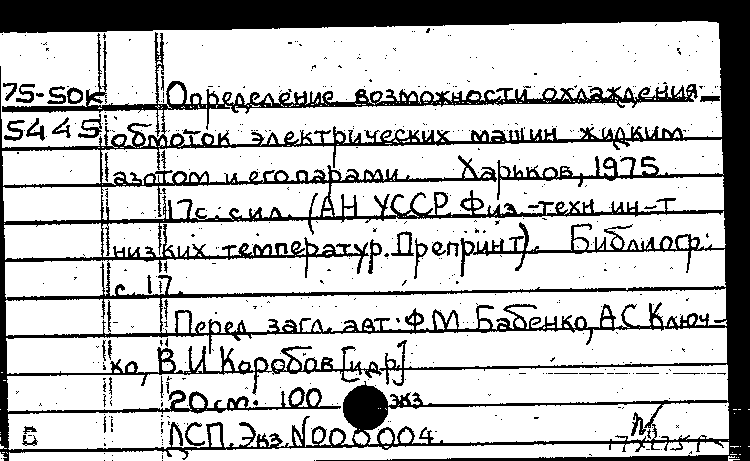 75-50к Определение возможности охлаждения
5445 обмоток электрических машин жидким
азотом и его парами. Харьков, 1975.
17с. с ил. (АН УССР. Физ.-техн. ин-т
низких температур. Препринт). Библиогр.:
с. 17.
Перед загл. авт.: Ф.М. Бабенко, А.С. Ключ-
ко, В.И. Коробов [и др.]
20 см. 100 экз.
Б ДСП. Экз. N000004.